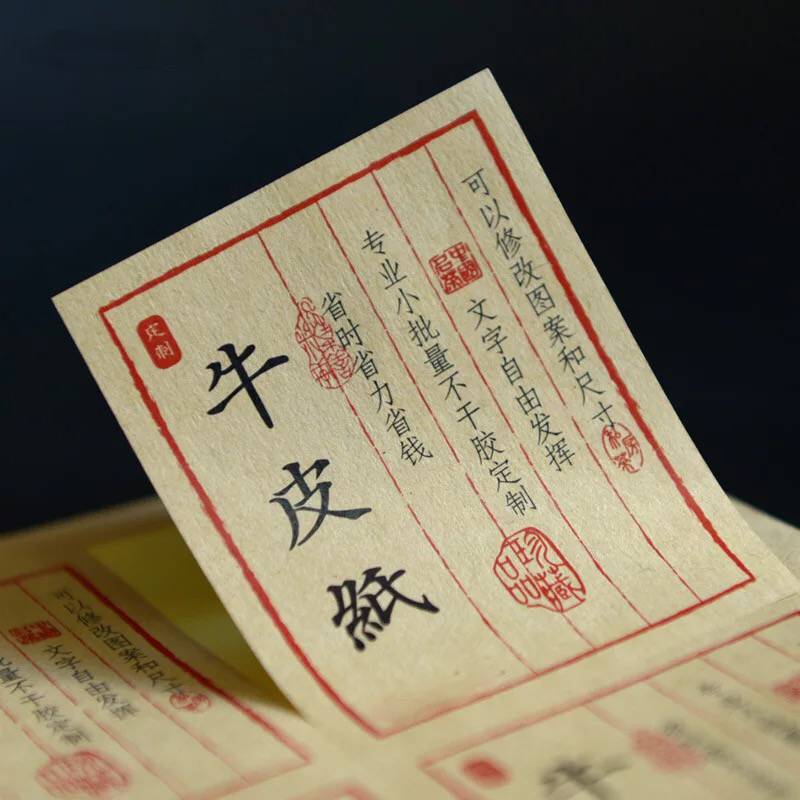 可以修改图案和尺寸
私房茶
文字自由发挥
专业小批量不干胶定制
珍藏品
省时省力省钱
牛皮紙
定制
可以修改图案和尺寸
文字自由发挥
批量不干胶定制
牛